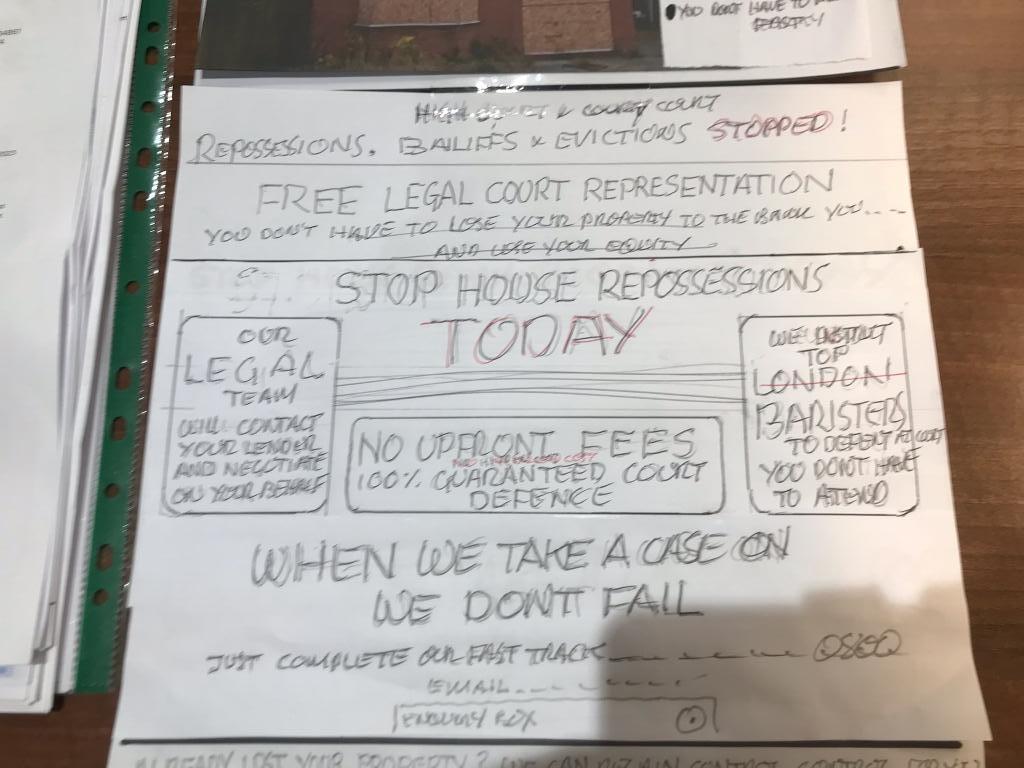 YOU DON'T HAVE TO
PERSONALLY
HIGH COURT & COUNTY COURT
REPOSSESSIONS, BAILIFFS & EVICTIONS STOPPED!
FREE LEGAL COURT REPRESENTATION
YOU DON'T HAVE TO LOSE YOUR PROPERTY TO THE BANK YOU....
AND LOSE YOUR EQUITY
STOP HOUSE REPOSSESSIONS
TODAY
OUR
LEGAL
TEAM
WILL CONTACT
YOUR LENDER
AND NEGOTIATE
ON YOUR BEHALF
NO UPFRONT FEES
100% GUARANTEED COURT
DEFENCE
WE INSTRUCT
TOP
LONDON
BARISTERS
TO DEFEND AT COURT
YOU DON'T HAVE
TO ATTEND
WHEN WE TAKE A CASE ON
WE DON'T FAIL
JUST COMPLETE OUR FAST TRACK 0800
EMAIL
ENQUIRY BOX
ALREADY LOST YOUR PROPERTY? WE CAN